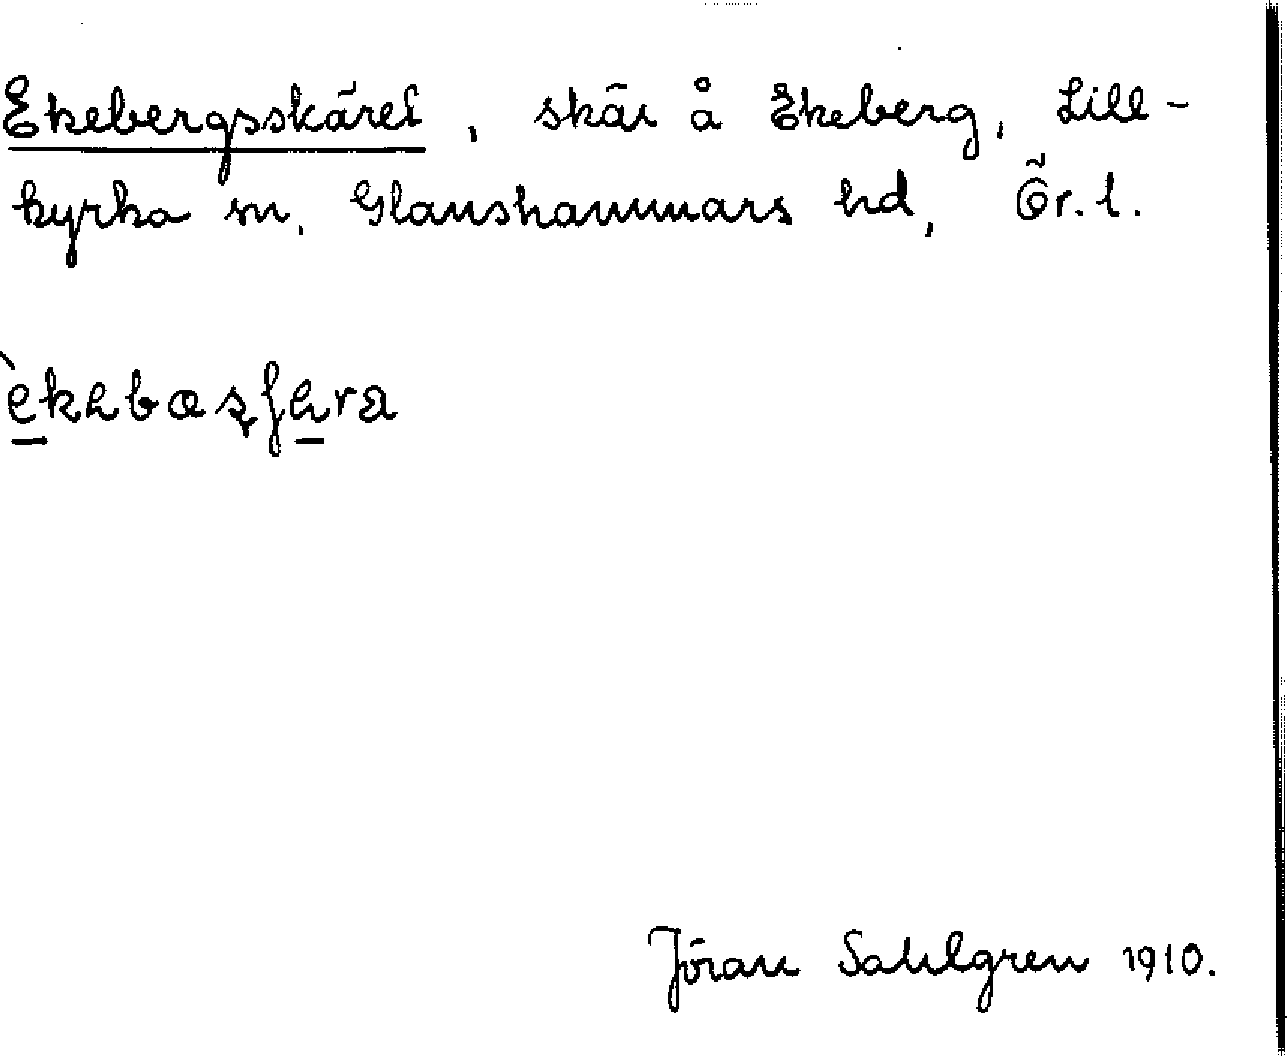 Ekebergsskäret, skär å Ekeberg, Lill-
kyrka sn, Glanshammars hd, Ör. l.
Jöran Sahlgren 1910.